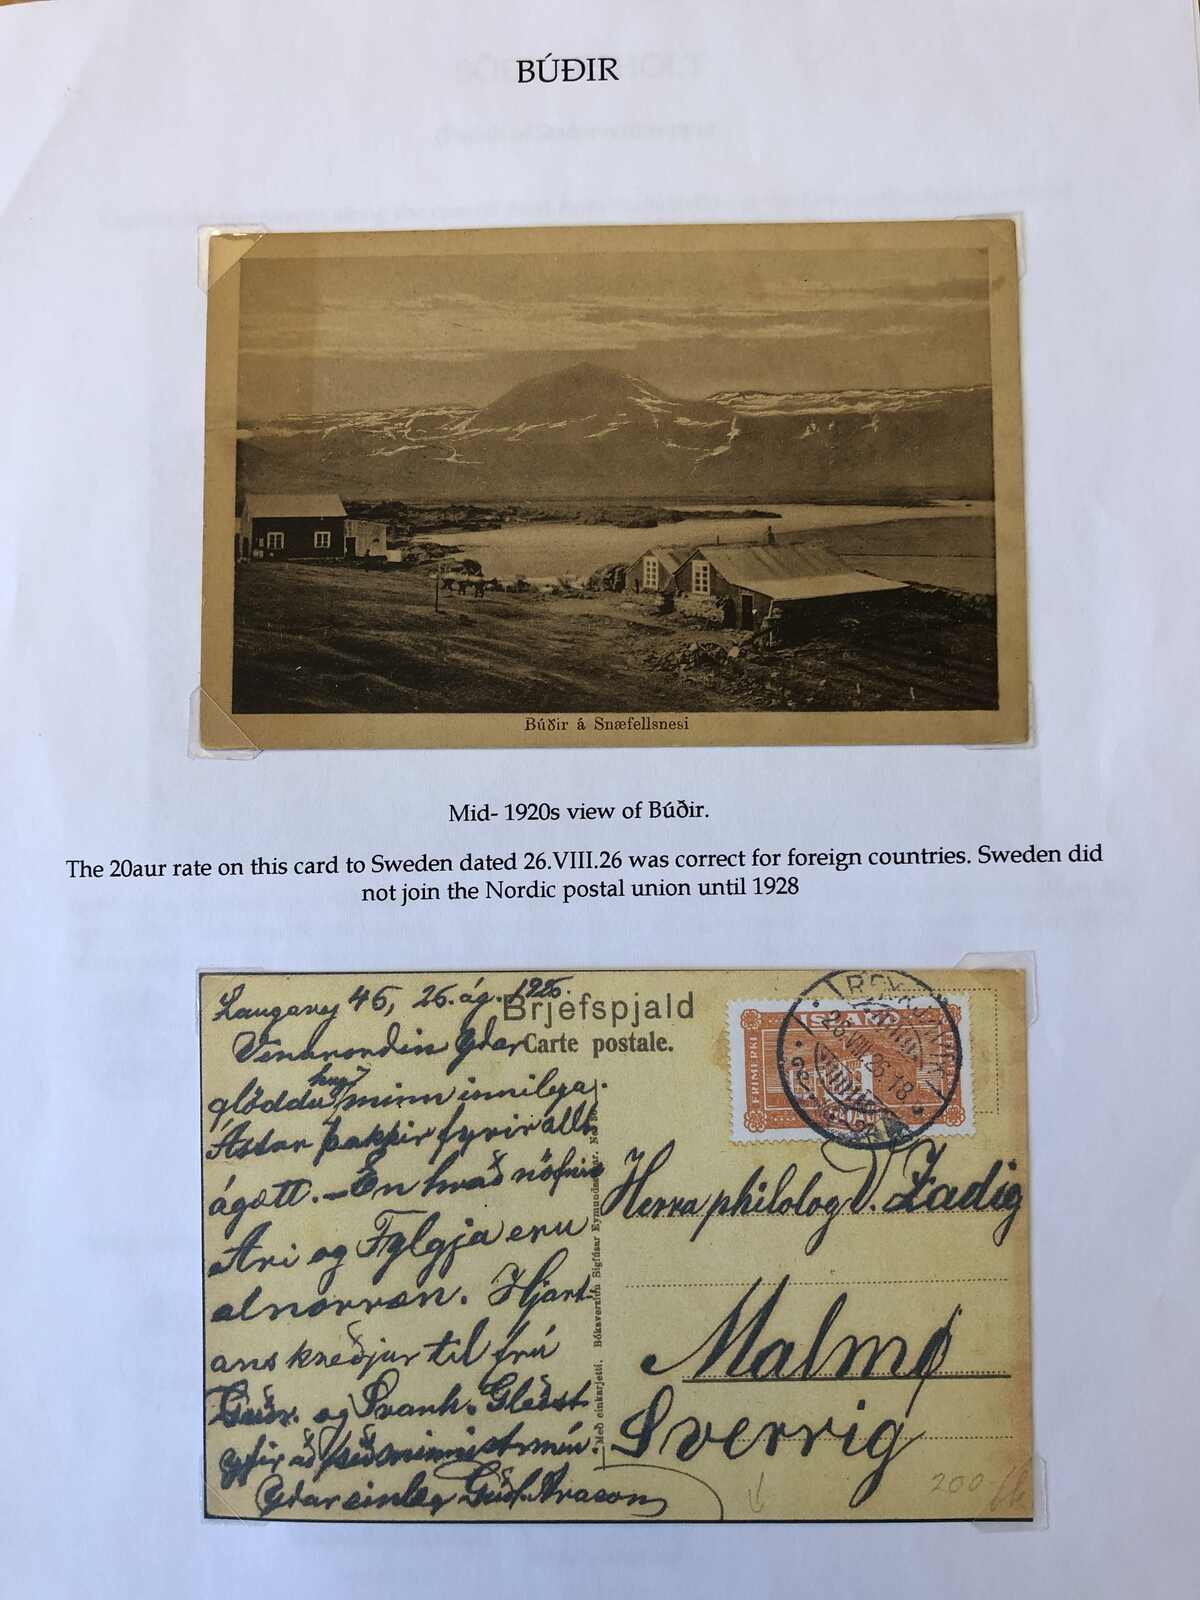 BÚÐIR
Búðir á Snæfellsnesi
Mid- 1920s view of Búðir.
The 20aur rate on this card to Sweden dated 26.VIII.26 was correct for foreign countries. Sweden did
not join the Nordic postal union until 1928
Laugaveg 46, 26. ág. 1926.
Brjefspjald
Carte postale.
Vinarorðin yðar
glöddu hug minn innilega.
Ástar þakkir fyrir allt
ágætt. - En hvað nöfnin
Ari og Fylgja eru
alnorræn. Hjart-
ans kveðjur til frú
Guðr. og Svanh. Gleðst
yfir að þér minnist mín.
Yðar einlæg Guðl. Arason
Með einkarjetti. Bókaverzlun Sigfúsar Eymundssonar.
ISLAND
FRIMERKI
REYKJAVIK
26.VIII.26.-18
Herra philolog V. Zadig
Malmø
Sverrig
200